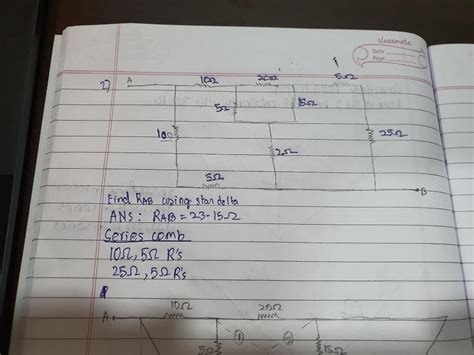 classmate
Date
Page
2)
A 10Ω 20Ω 5Ω
5Ω 15Ω
10Ω 2Ω 25Ω
5Ω
B
Find RAB using star delta
ANS : RAB = 23.15Ω
Series comb
10Ω, 5Ω R's
25Ω, 5Ω R's
A 10Ω 20Ω
5Ω 1 2 15Ω